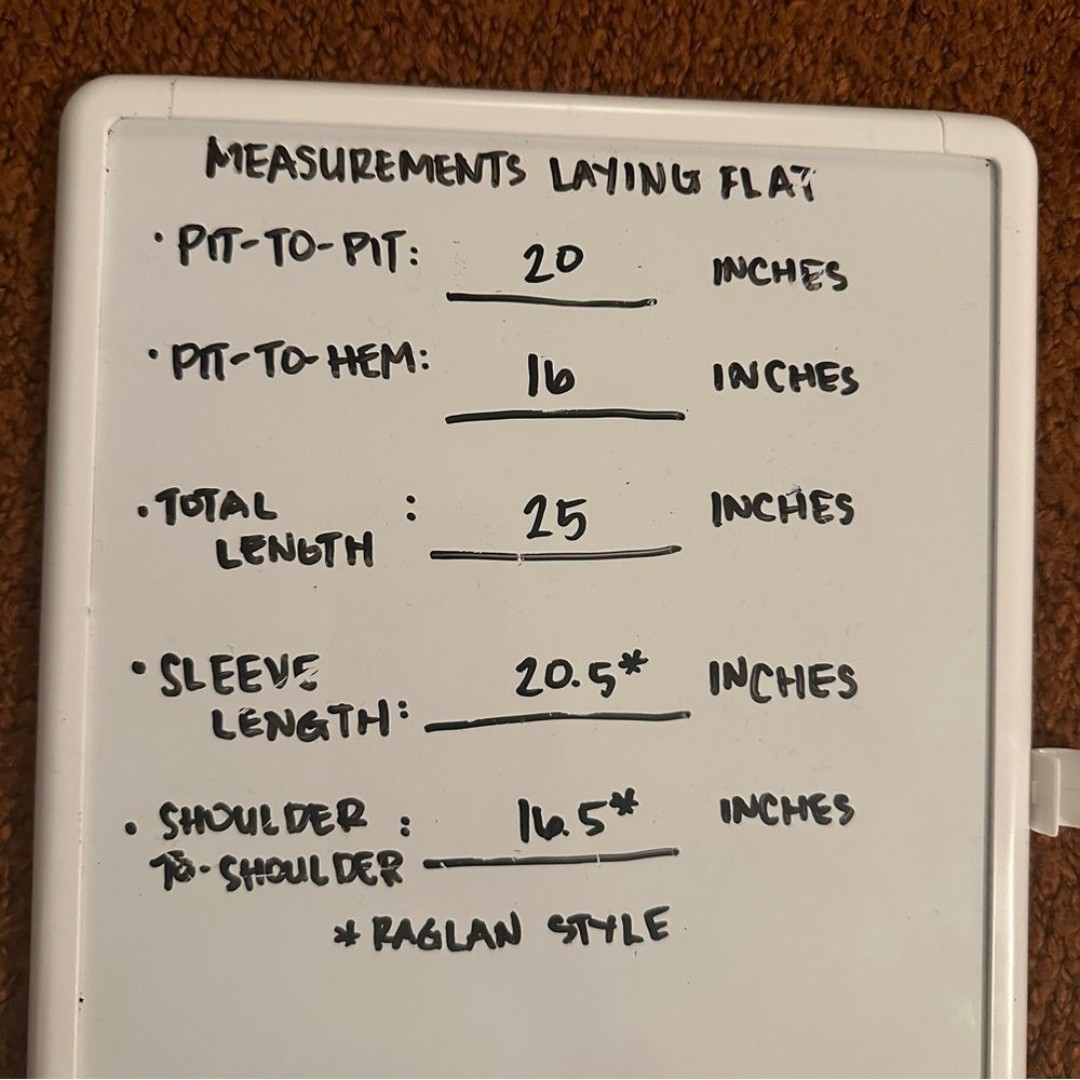 MEASUREMENTS LAYING FLAT
• PIT-TO-PIT: 20 INCHES
• PIT-TO-HEM: 16 INCHES
• TOTAL LENGTH : 25 INCHES
• SLEEVE LENGTH: 20.5* INCHES
• SHOULDER TO-SHOULDER : 16.5* INCHES
* RAGLAN STYLE